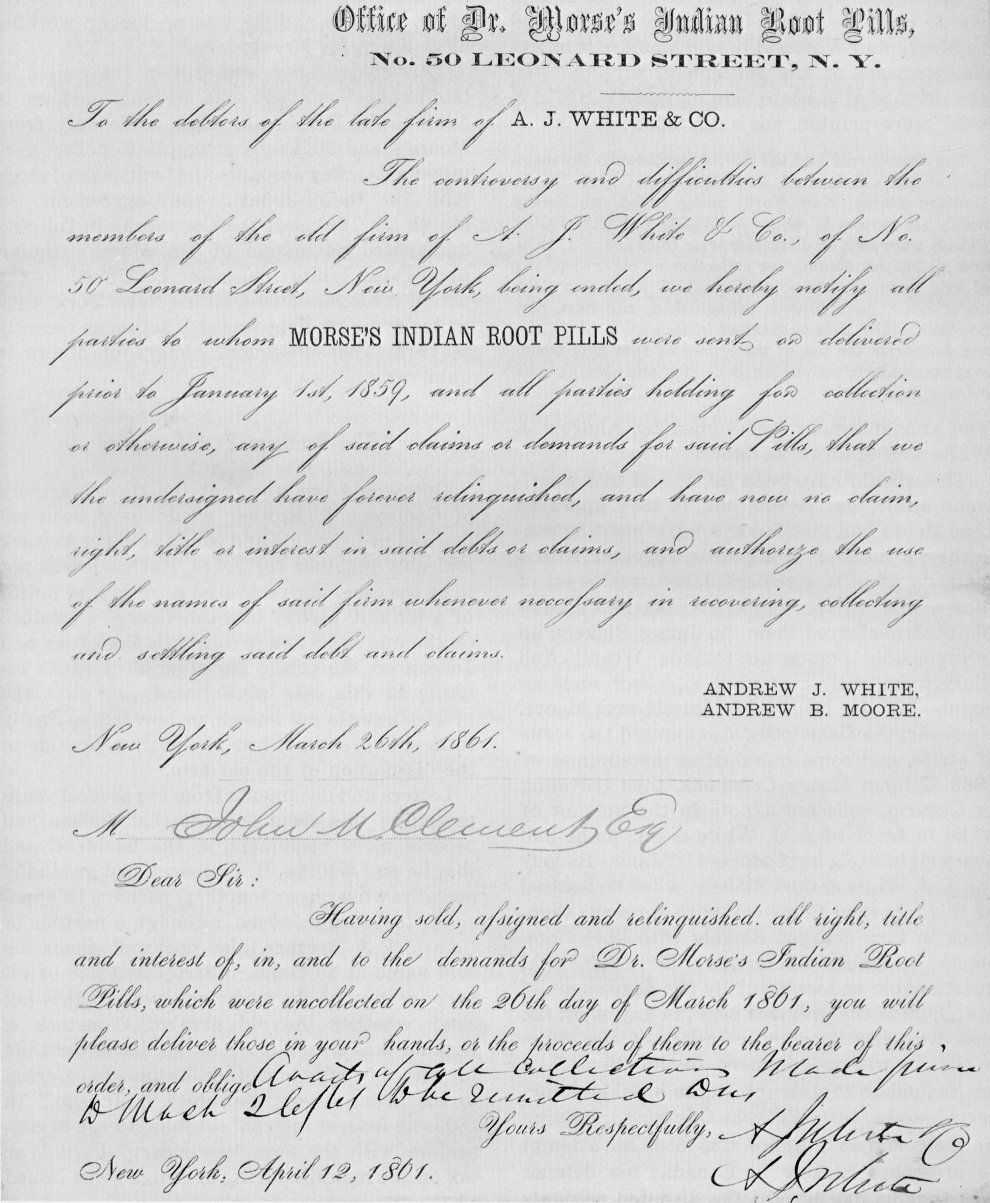 Office of Dr. Morse's Indian Root Pills,
No. 50 LEONARD STREET, N. Y.
To the debtors of the late firm of A. J. WHITE & CO.
The controversy and difficulties between the
members of the old firm of A. J. White & Co., of No.
50 Leonard Street, New York, being ended, we hereby notify all
parties to whom MORSE'S INDIAN ROOT PILLS were sent or delivered
prior to January 1st, 1859, and all parties holding for collection
or otherwise, any of said claims or demands for said Pills, that we
the undersigned have forever relinquished, and have now no claim,
right, title or interest in said debts or claims, and authorize the use
of the names of said firm whenever neccessary in recovering, collecting
and settling said debt and claims.
ANDREW J. WHITE,
ANDREW B. MOORE.
New York, March 26th, 1861.
M John M Clement Esq
Dear Sir:
Having sold, assigned and relinquished. all right, title
and interest of, in, and to the demands for Dr. Morse's Indian Root
Pills, which were uncollected on the 26th day of March 1861, you will
please deliver those in your hands, or the proceeds of them to the bearer of this
order, and oblige Avails of all Collections Made
to 26/61 to be remitted
Yours Respectfully, A J White & Co
New York, April 12, 1861. A J White